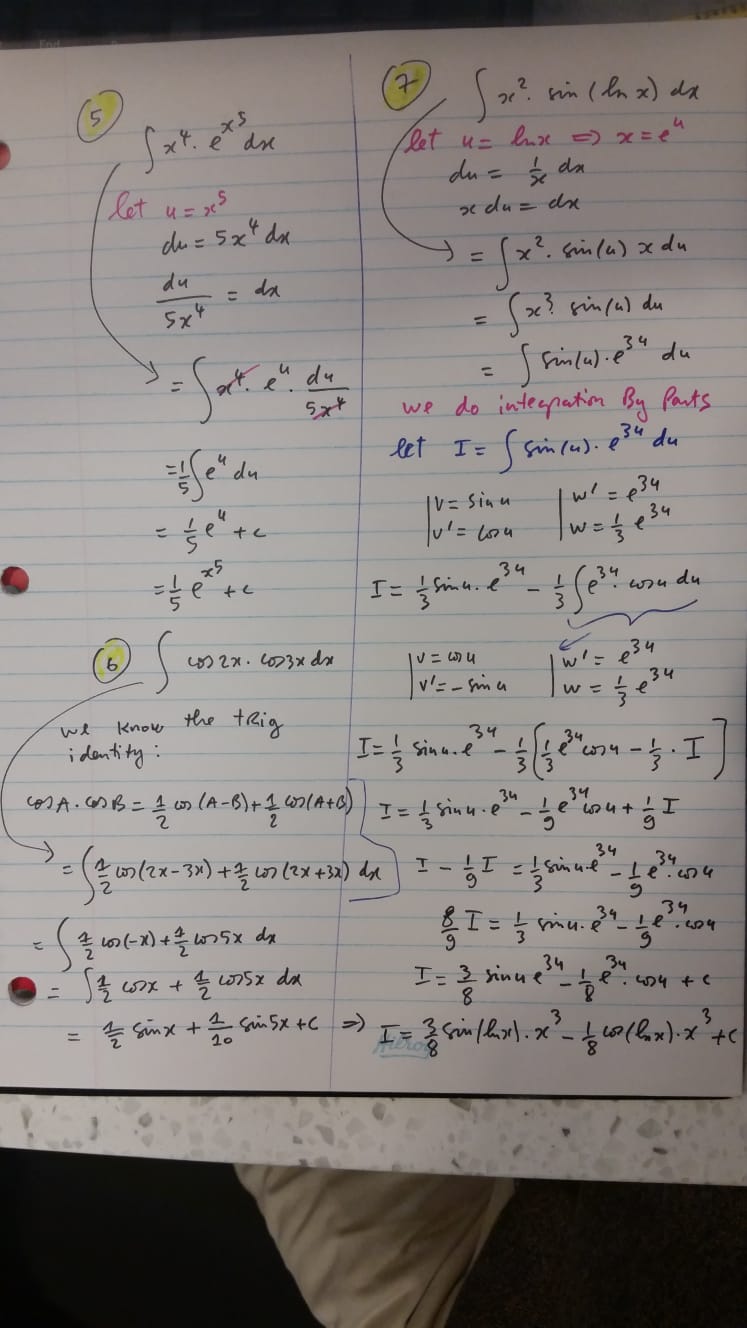 ⑤
∫ x⁴ · e^(x⁵) dx
let u = x⁵
du = 5x⁴ dx
du/(5x⁴) = dx
= ∫ x⁴ · e^u · du/(5x⁴)
= 1/5 ∫ e^u du
= 1/5 e^u + c
= 1/5 e^(x⁵) + c
⑥ ∫ cos 2x · cos 3x dx
we know the tRig
identity :
cos A · cos B = 1/2 cos (A-B) + 1/2 cos (A+B)
= ∫ 1/2 cos (2x - 3x) + 1/2 cos (2x + 3x) dx
= ∫ 1/2 cos (-x) + 1/2 cos 5x dx
= ∫ 1/2 cos x + 1/2 cos 5x dx
= 1/2 sin x + 1/10 sin 5x + c
⑦ ∫ x² · sin (ln x) dx
let u = ln x ⇒ x = e^u
du = 1/x dx
x du = dx
= ∫ x² · sin(u) x du
= ∫ x³ · sin(u) du
= ∫ sin(u) · e^(3u) du
we do integration By Parts
let I = ∫ sin(u) · e^(3u) du
| v = sin u | w' = e^(3u)
| v' = cos u | w = 1/3 e^(3u)
I = 1/3 sin u · e^(3u) - 1/3 ∫ e^(3u) · cos u du
| v = cos u | w' = e^(3u)
| v' = - sin u | w = 1/3 e^(3u)
I = 1/3 sin u · e^(3u) - 1/3 [ 1/3 e^(3u) cos u - 1/3 · I ]
I = 1/3 sin u · e^(3u) - 1/9 e^(3u) cos u + 1/9 I
I - 1/9 I = 1/3 sin u · e^(3u) - 1/9 e^(3u) · cos u
8/9 I = 1/3 sin u · e^(3u) - 1/9 e^(3u) · cos u
I = 3/8 sin u e^(3u) - 1/8 e^(3u) · cos u + c
⇒ I = 3/8 sin(ln x) · x³ - 1/8 cos (ln x) · x³ + c